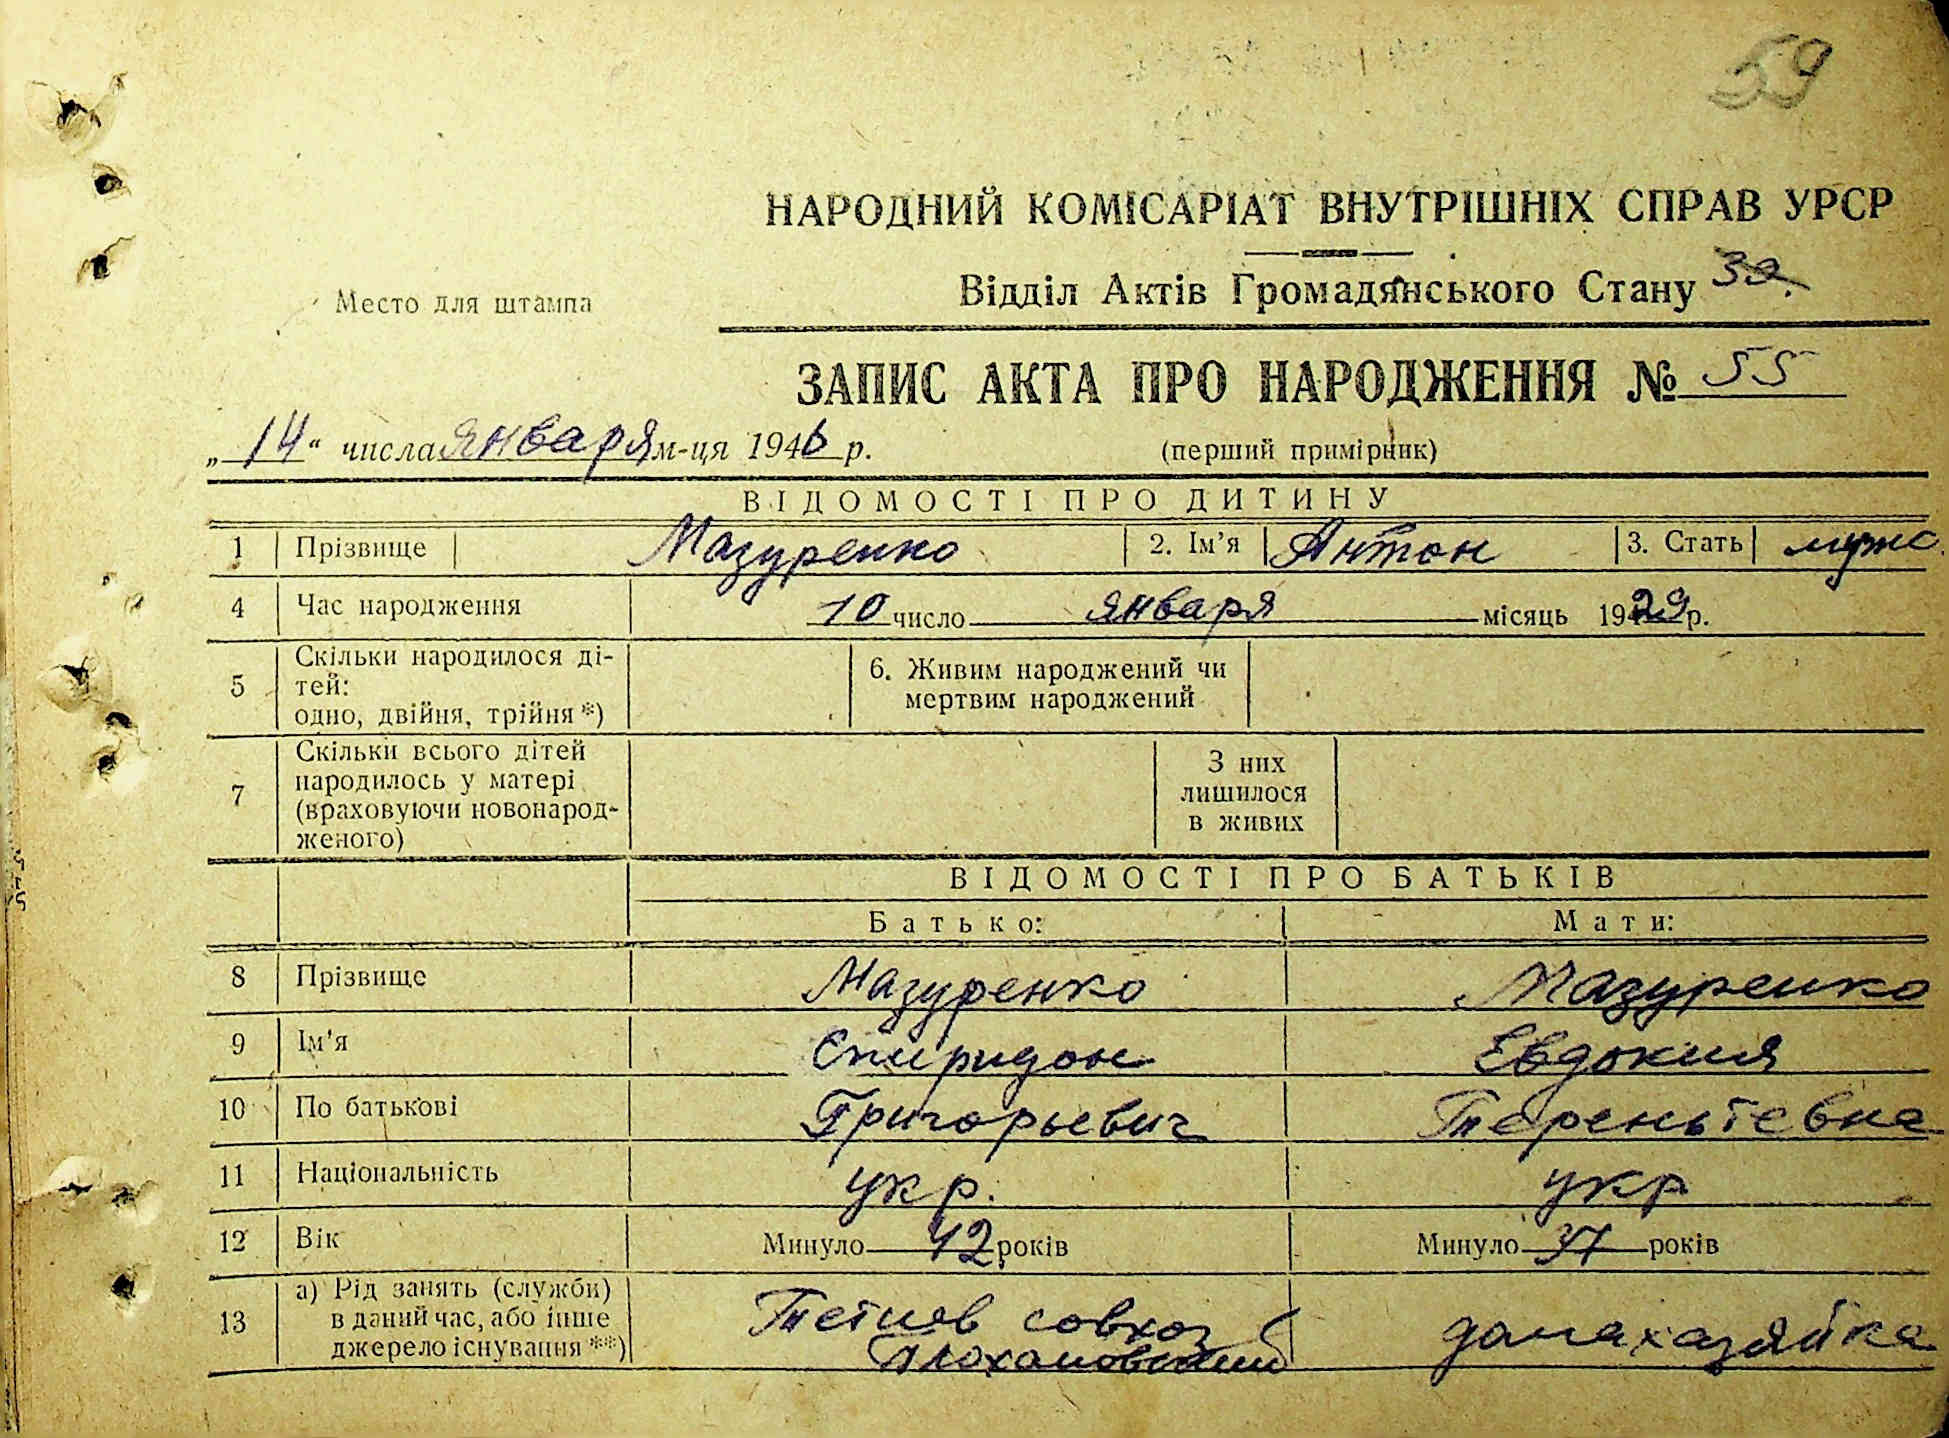 59
НАРОДНИЙ КОМІСАРІАТ ВНУТРІШНІХ СПРАВ УРСР
Место для штампа
Відділ Актів Громадянського Стану
ЗАПИС АКТА ПРО НАРОДЖЕННЯ № 55
„14“ числа января м-ця 1946 р. (перший примірник)
ВІДОМОСТІ ПРО ДИТИНУ
1 Прізвище Мазуренко 2. Ім'я Антон 3. Стать мужс.
4 Час народження 10 число января місяць 1929 р.
5 Скільки народилося ді-
тей:
одно, двійня, трійня *)
6. Живим народжений чи
мертвим народжений
7 Скільки всього дітей
народилось у матері
(враховуючи новонарод-
женого)
З них
лишилося
в живих
ВІДОМОСТІ ПРО БАТЬКІВ
Батько: Мати:
8 Прізвище Мазуренко Мазуренко
9 Ім'я Спиридон Евдокия
10 По батькові Григорьевич Терентьевна
11 Національність укр. укр
12 Вік Минуло 42 років Минуло 37 років
13 а) Рід занять (служби)
в даний час, або інше
джерело існування **)
совхоз
домахазяйка